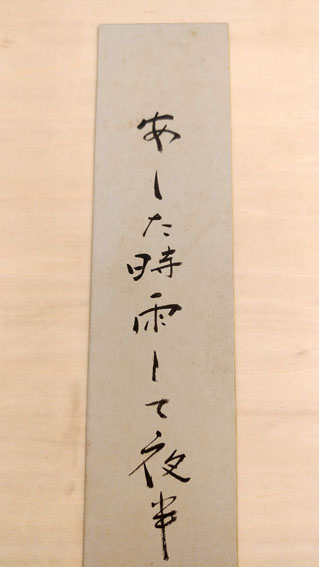 あした時雨して夜半